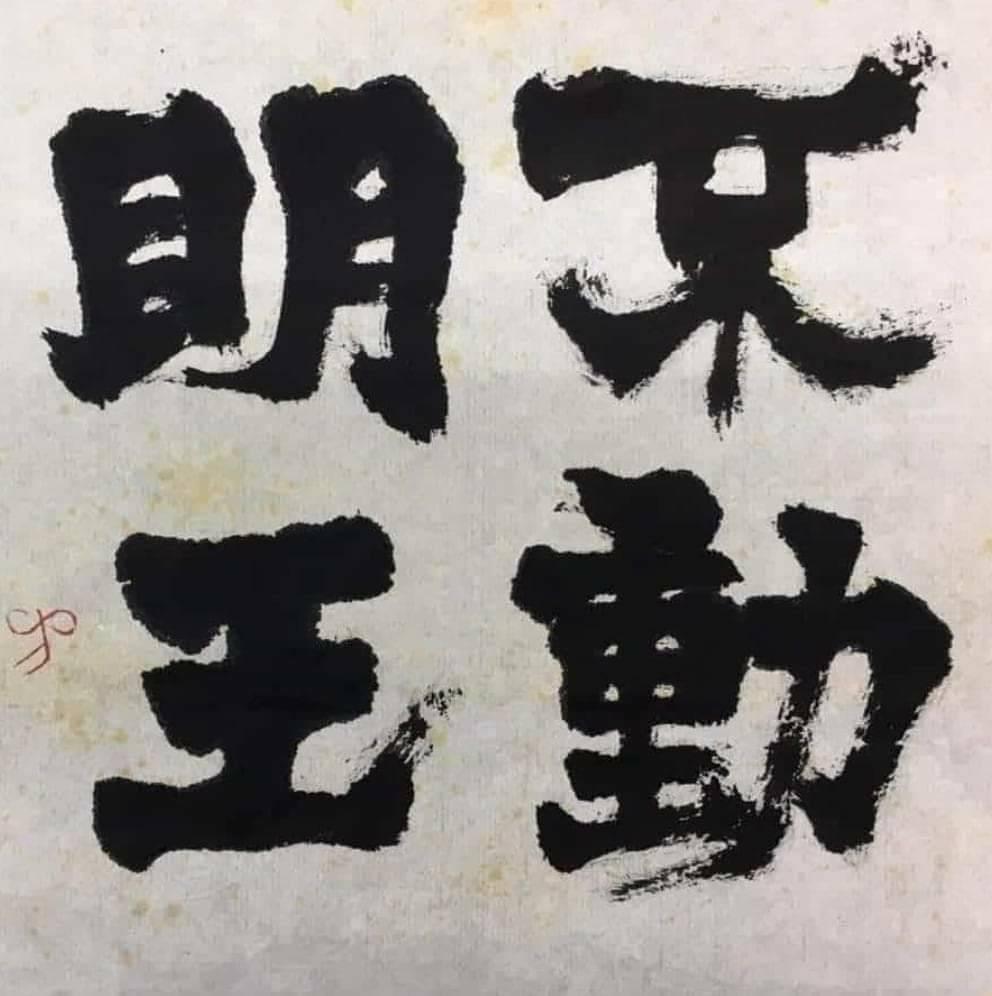 不動
明王